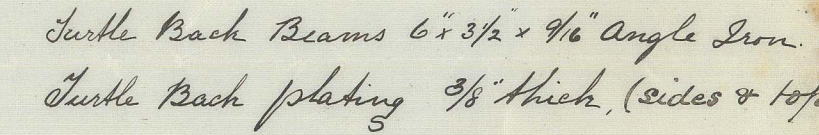 Turtle Back Beams 6" x 3 1/2" x 9/16" Angle Iron.
Turtle Back plating 3/8" thick, (sides & top